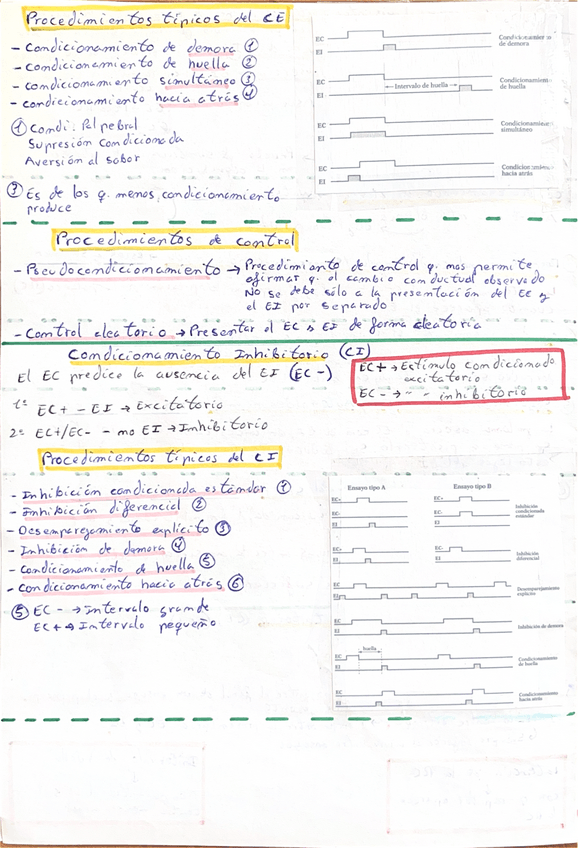 Procedimientos típicos del CE
- Condicionamiento de demora ①
- Condicionamiento de huella ②
- condicionamiento simultáneo ③
- condicionamiento hacia atrás ④
① Condi. Palpebral
Supresión Condicionada
Aversión al sabor
③ Es de los q. menos condicionamiento
produce
EC
EI
Condicionamiento
de demora
EC
EI
Intervalo de huella
Condicionamiento
de huella
EC
EI
Condicionamiento
simultáneo
EC
EI
Condicionamiento
hacia atrás
Procedimientos de control
- Pseudocondicionamiento → Procedimiento de control q. nos permite
afirmar q. el cambio conductual observado
No se debe sólo a la presentación del EC y
el EI por separado
- Control aleatorio → Presentar el EC y EI de forma aleatoria
Condicionamiento Inhibitorio (CI)
El EC predice la ausencia del EI (EC -)
EC+ → Estímulo condicionado
excitatorio
EC - → " - inhibitorio
1º EC+ - EI → Excitatorio
2º EC+/EC- - no EI → Inhibitorio
Procedimientos típicos del CI
- Inhibición condicionada estándar ①
- Inhibición diferencial ②
- Desemparejamiento explícito ③
- Inhibición de demora ④
- Condicionamiento de huella ⑤
- condicionamiento hacia atrás ⑥
⑤ EC - → Intervalo grande
EC+ → Intervalo pequeño
Ensayo tipo A
Ensayo tipo B
EC+
EC-
EI
EC+
EC-
EI
Inhibición
condicionada
estándar
EC+
EI
EC-
EI
Inhibición
diferencial
EC
EI
Desemparejamiento
explícito
EC
EI
Inhibición de demora
huella
EC
EI
Condicionamiento
de huella
EC
EI
Condicionamiento
hacia atrás